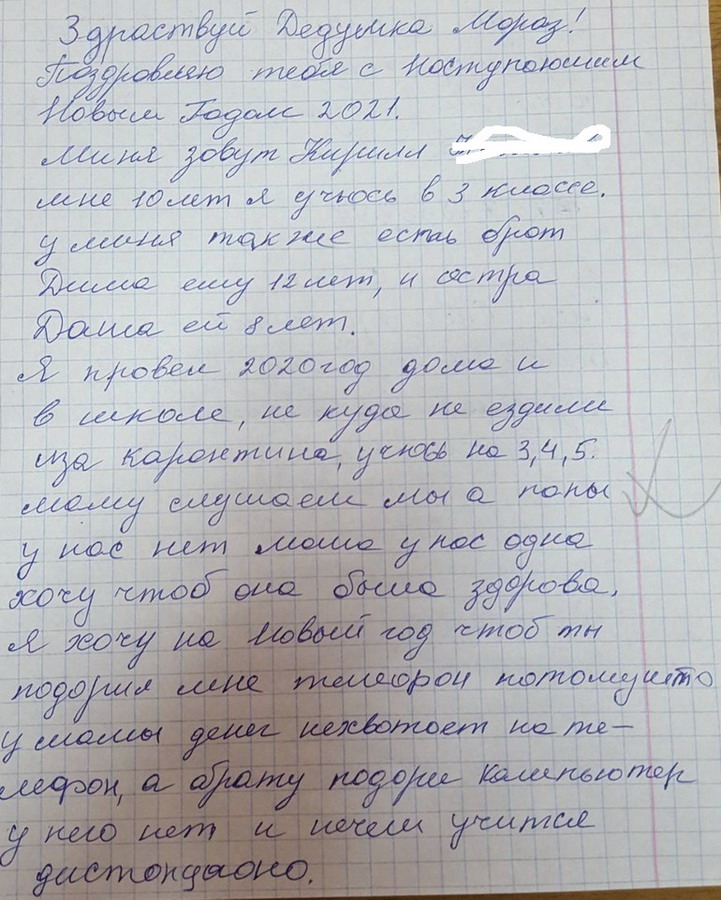 Здраствуй Дедушка Мороз!
Поздровляю тебя с Наступоюшим
Новым Годом 2021.
Миня зовут Кирилл
мне 10 лет я учюсь в 3 классе.
у миня также есть брат
Дима ему 12 лет, и состра
Даша ей 8 лет.
Я провел 2020 год дома и
в школе, не куда не ездили
иза каронтина, учюсь на 3,4,5.
маму слушаем мы а папы
у нас нет мама у нас одна
хочу чтоб она была здорова.
Я хочу на Новый год чтоб ты
подорил мне телефон потомушто
у мамы денег нехвотает на те-
лефон, а брату подори компьютер
у него нет и нечем учится